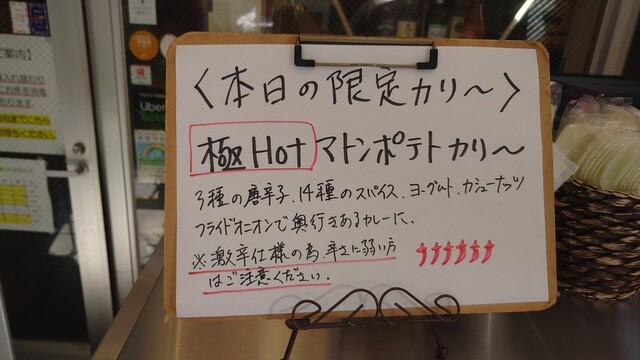 〈本日の限定カリ〜〉
極Hot マトンポテトカリ〜
3種の唐辛子、14種のスパイス、ヨーグルト、カシューナッツ
フライドオニオンで奥行きあるカレーに。
※激辛仕様の為、辛さに弱い方
はご注意ください。
ご案内
Uber